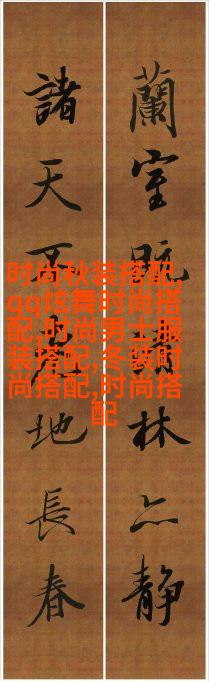 蘭室林亦静
諸天地長春
时尚秋装搭配,
qq炫舞时尚搭
配,时尚男士服
装搭配,冬装时
尚搭配,时尚搭
配